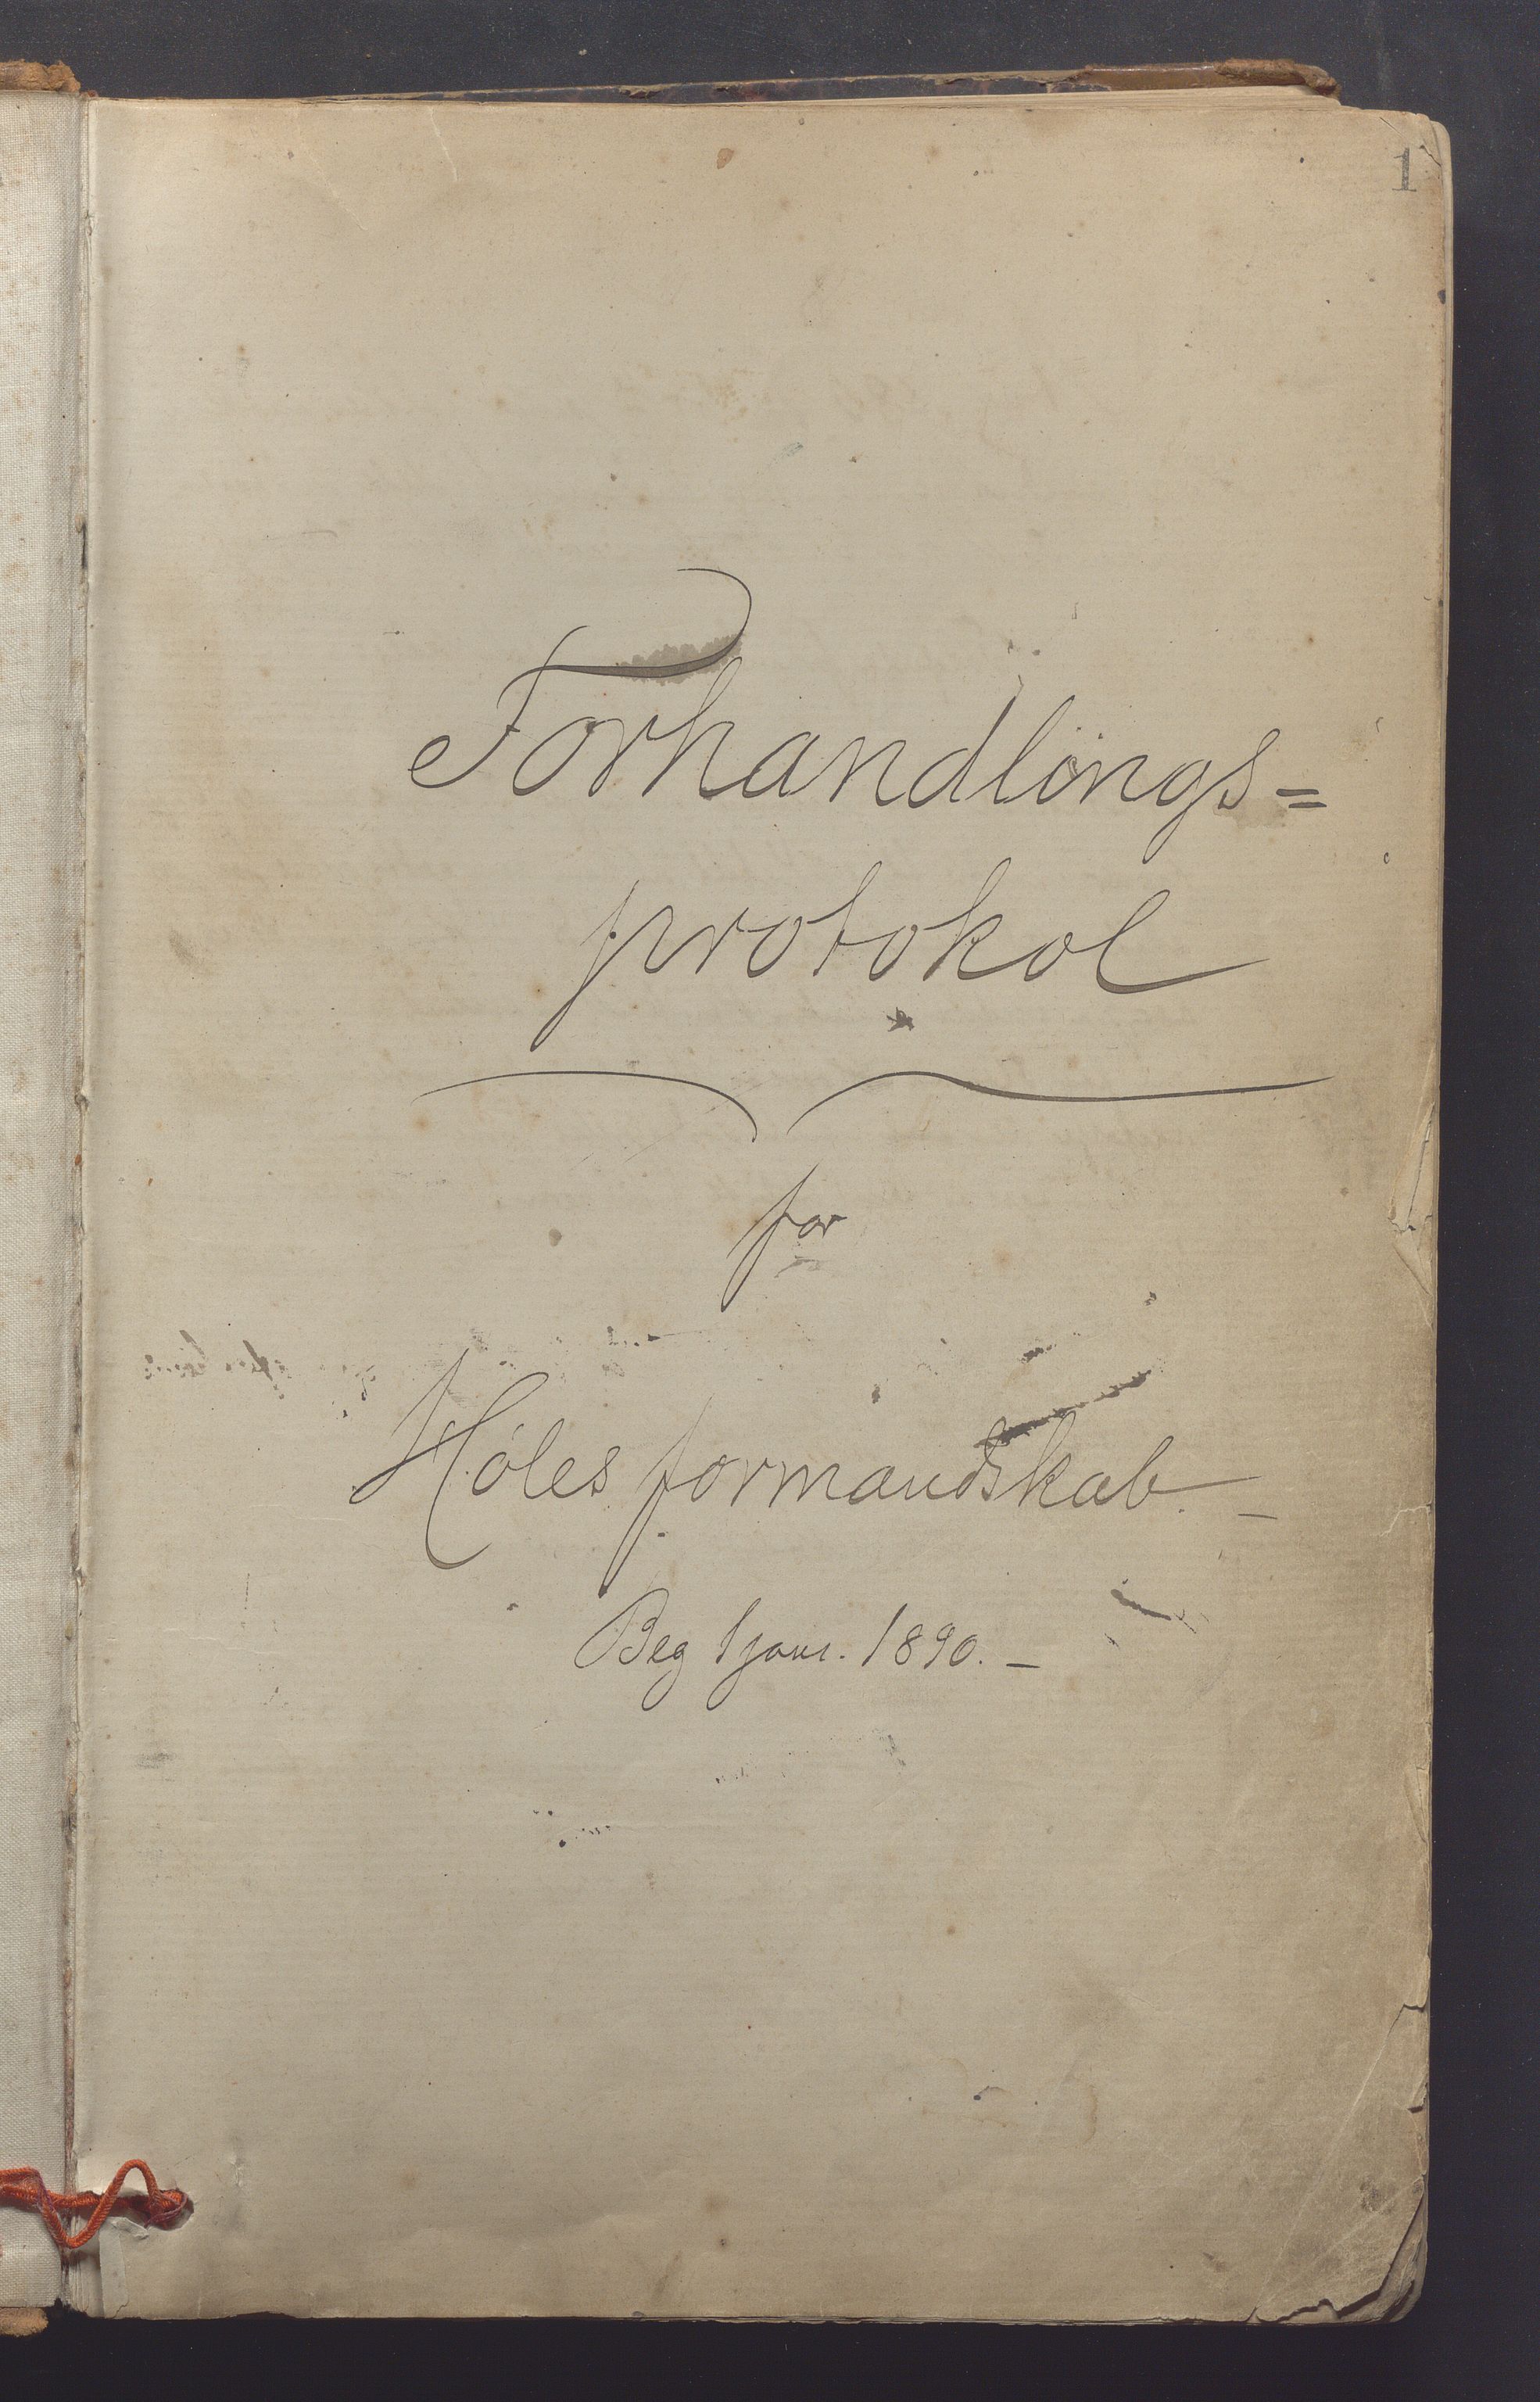 1
Forhandlings=
protokol
for
Høles formandskab. –
Beg 1 janr. 1890. –